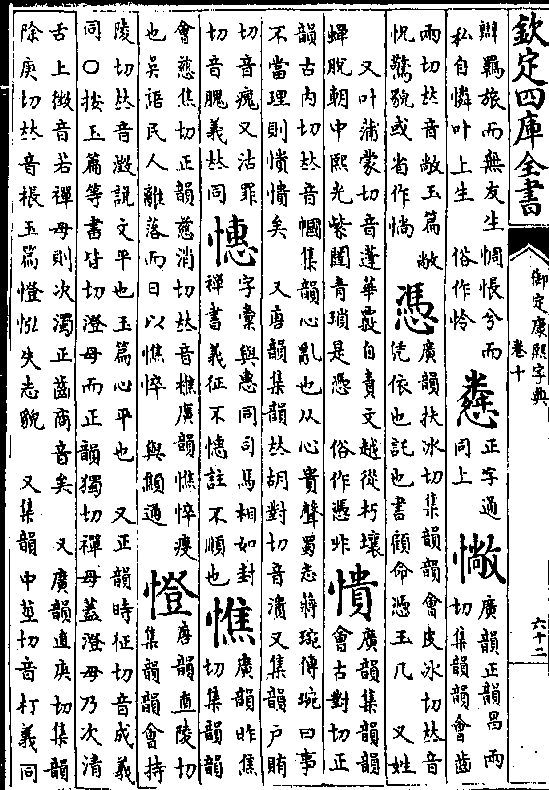 欽定四庫全書
御定康熙字典
卷十
六十二
辯羈旅而無友生惆悵兮而
私自憐叶上生 俗作怜
𢢞
正字通
同上
憱
廣韻正韻昌兩
切集韻韻會齒
兩切𠀤音敞玉篇敞
怳驚貌或省作惝
憑
廣韻扶冰切集韻韻會皮冰切𠀤音
凭依也託也書顧命憑玉几 又姓
又叶蒲蒙切音蓬華覈自責文越從朽壤
蟬脫朝中熙光紫闥青瑣是憑 俗作憑非
憒
廣韻集韻韻
會古對切正
韻古內切𠀤音幗集韻心亂也从心貴聲蜀志蔣琬傳琬曰事
不當理則憒憒矣 又唐韻集韻𠀤胡對切音潰又集韻戸賄
切音瘣又沽罪
切音䫥義𠀤同
憓
字彙與惠同司馬相如封
禪書義征不憓註不順也
憔
廣韻昨焦
切集韻韻
會慈焦切正韻慈消切𠀤音樵廣韻憔悴瘦
也吳語民人離落而日以憔悴 與顦通
憕
唐韻直陵切
集韻韻會持
陵切𠀤音澂說文平也玉篇心平也 又正韻時征切音成義
同○按玉篇等書皆切澄母而正韻獨切禪母蓋澄母乃次清
舌上徵音若禪母則次濁正齒商音矣 又廣韻直庚切集韻
除庚切𠀤音棖玉篇憕㤥失志貌 又集韻中莖切音朾義同